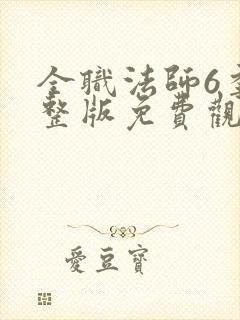 全職法師6
整版免費觀
愛豆寶